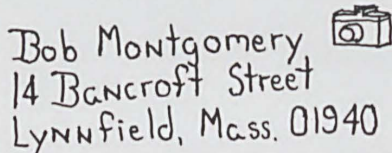 Bob Montgomery
14 Bancroft Street
Lynnfield, Mass. 01940